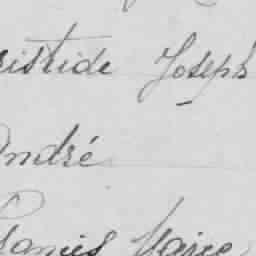 ristide Joseph
André
Marie